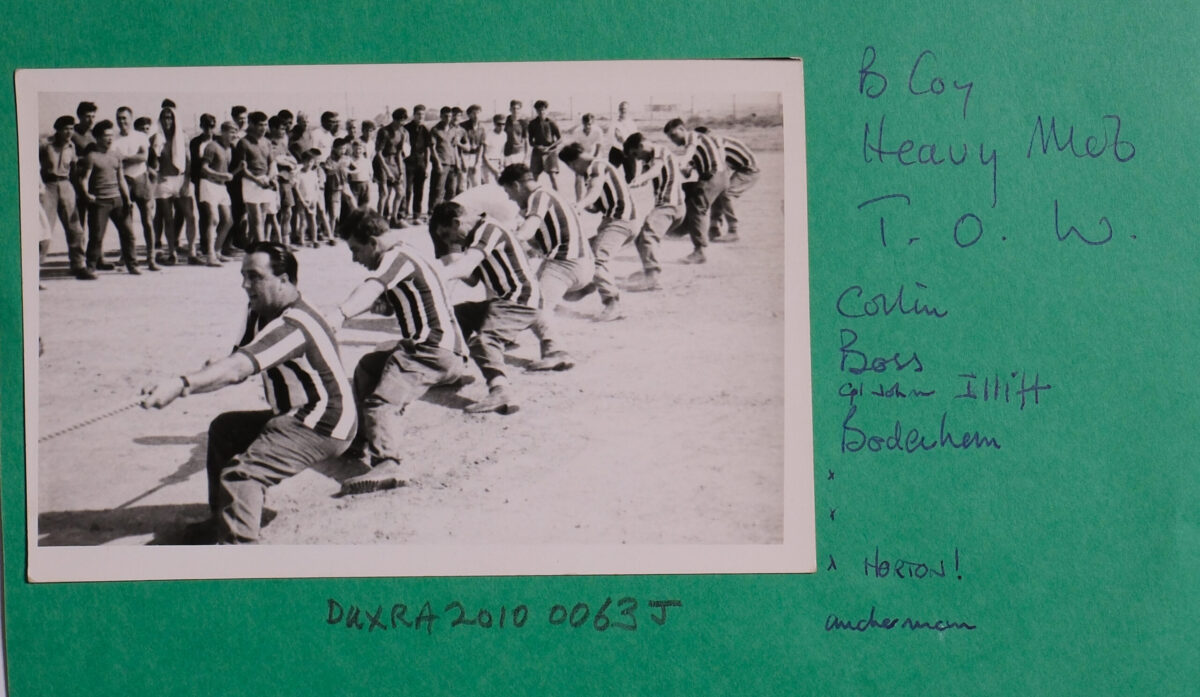 B Coy
Heavy Mob
T. O. W.
Corlin
Boss
Cpl John Illiff
Bodenhem
x
x
x HORTON!
ancherman
DUXRA2010 0063J